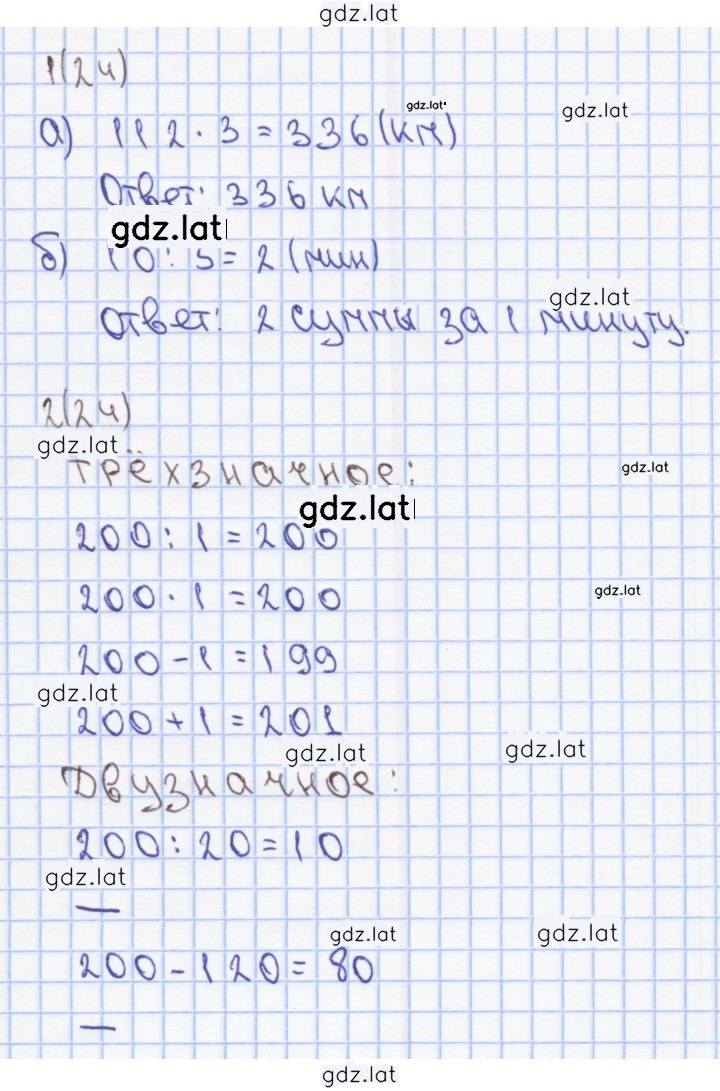 gdz.lat
1(24)
gdz.lat
gdz.lat
а) 112 · 3 = 336 (км)
Ответ: 336 км
gdz.lat
б) 10 : 5 = 2 (мин)
gdz.lat
Ответ: 2 суммы за 1 минуту.
2(24)
gdz.lat
трёхзначное:
gdz.lat
gdz.lat
200 : 1 = 200
gdz.lat
200 · 1 = 200
200 - 1 = 199
gdz.lat
200 + 1 = 201
gdz.lat
gdz.lat
Двузначное:
200 : 20 = 10
gdz.lat
—
gdz.lat
gdz.lat
200 - 120 = 80
—
gdz.lat